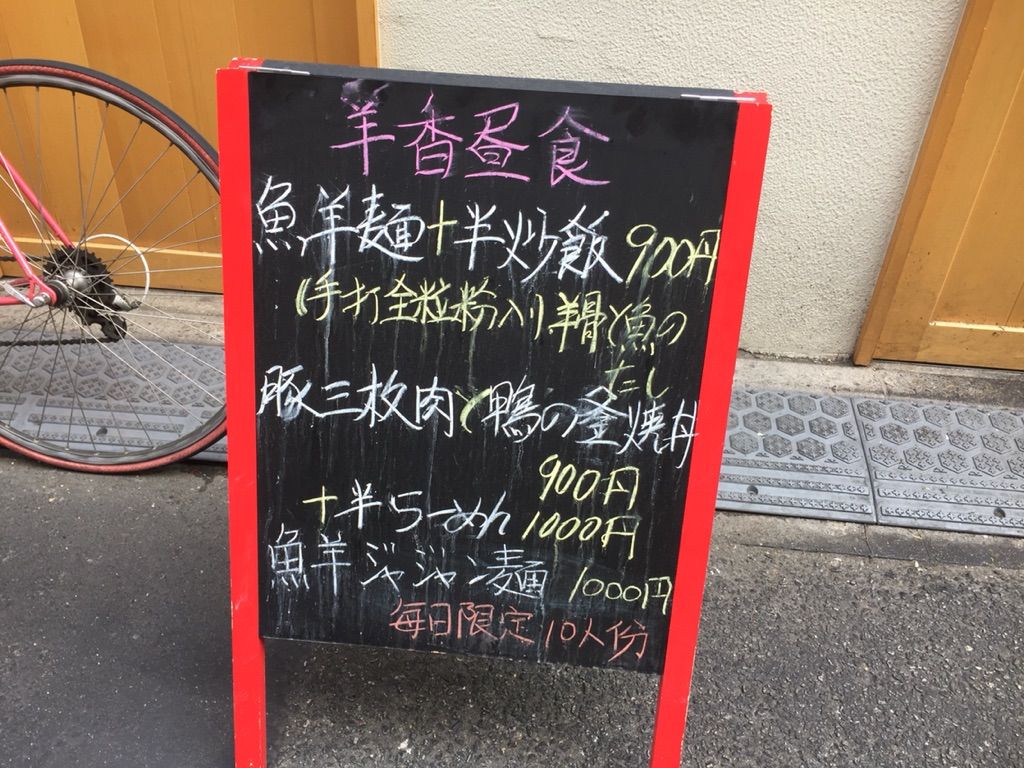 羊香昼食
魚羊麺+半炒飯 900円
(手打全粒粉入り 羊骨と魚の
だし
豚三枚肉と鴨の釜焼丼
900円
+半らーめん 1000円
魚羊ジャジャン麺 1000円
毎日限定 10人份